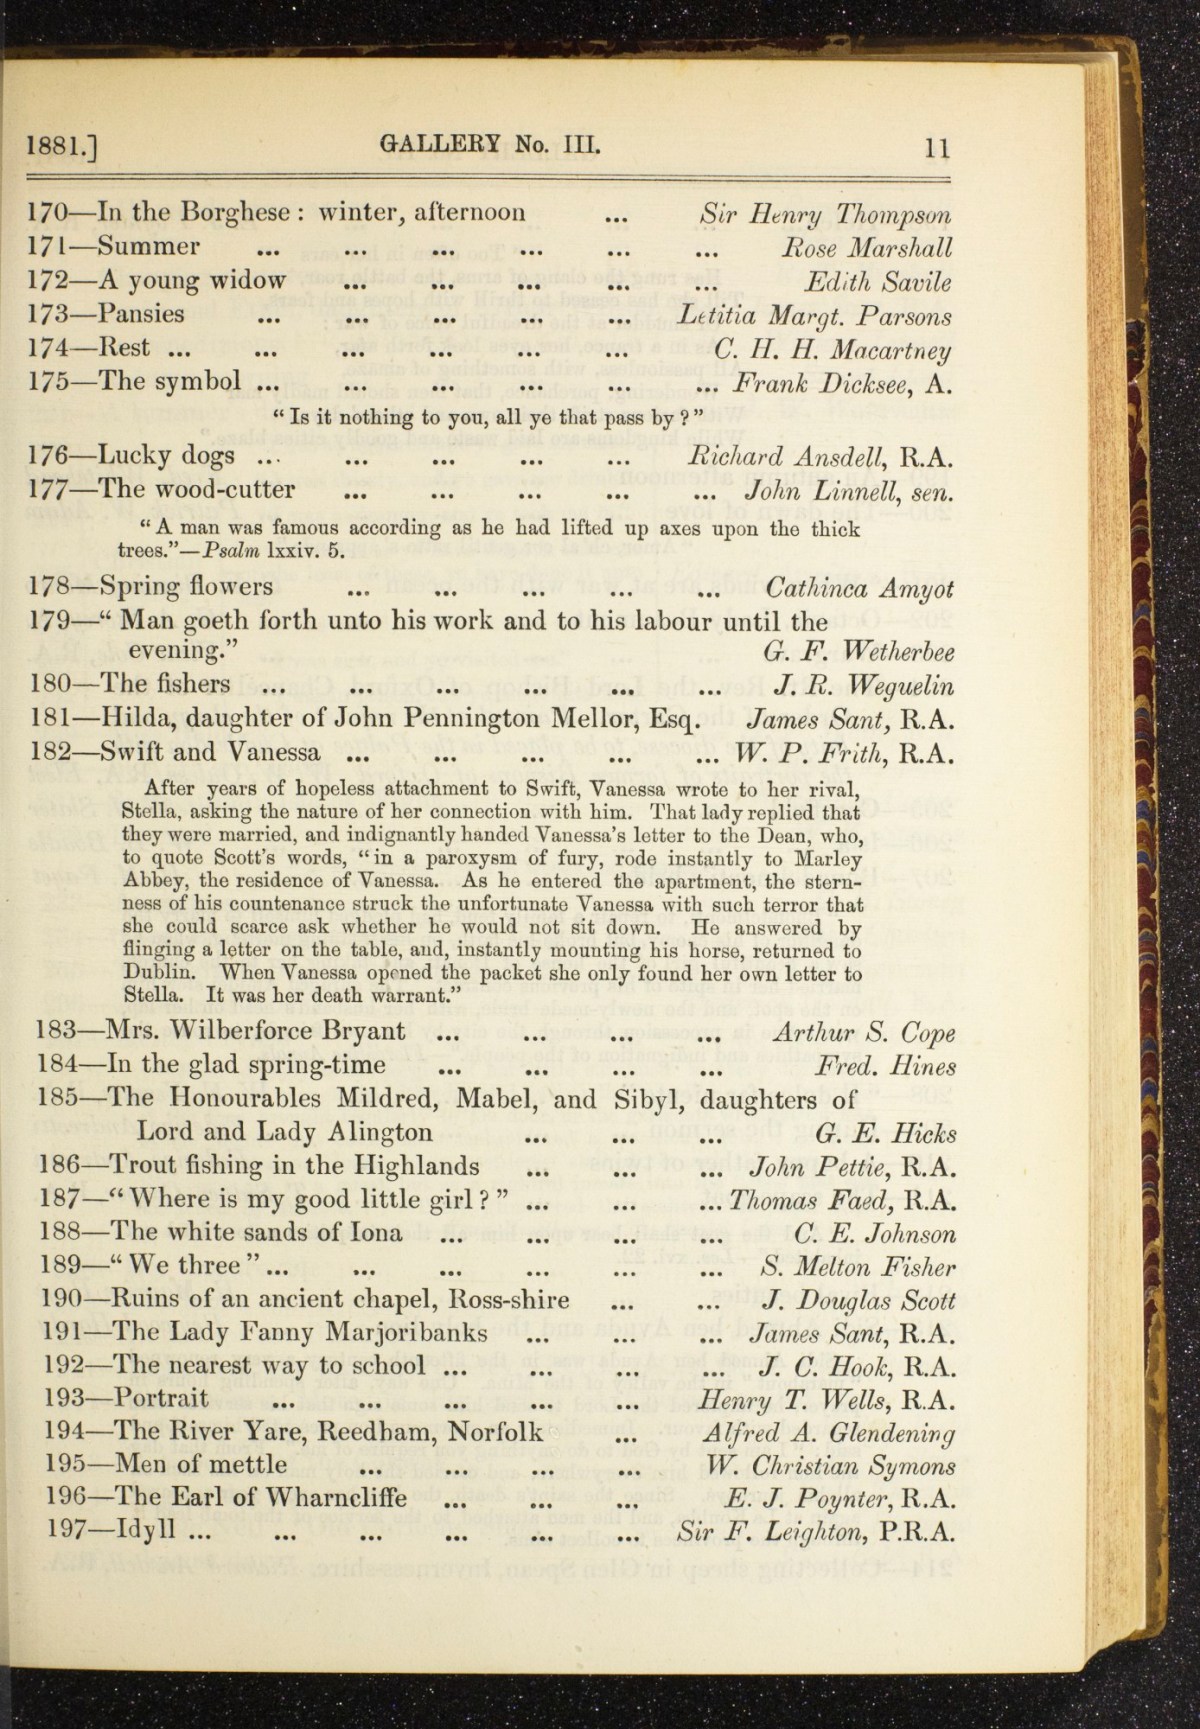 1881.] GALLERY No. III. 11
170—In the Borghese : winter, afternoon ... Sir Henry Thompson
171—Summer ... ... ... ... ... ... Rose Marshall
172—A young widow ... ... ... ... ... Edith Savile
173—Pansies ... ... ... ... ... Letitia Margt. Parsons
174—Rest ... ... ... ... ... ... C. H. H. Macartney
175—The symbol ... ... ... ... ... ... Frank Dicksee, A.
“ Is it nothing to you, all ye that pass by ? ”
176—Lucky dogs ... ... ... ... ... Richard Ansdell, R.A.
177—The wood-cutter ... ... ... ... ... John Linnell, sen.
“ A man was famous according as he had lifted up axes upon the thick
trees.”—Psalm lxxiv. 5.
178—Spring flowers ... ... ... ... ... Cathinca Amyot
179—“ Man goeth forth unto his work and to his labour until the
evening.” G. F. Wetherbee
180—The fishers ... ... ... ... ... ... J. R. Weguelin
181—Hilda, daughter of John Pennington Mellor, Esq. James Sant, R.A.
182—Swift and Vanessa ... ... ... ... ... W. P. Frith, R.A.
After years of hopeless attachment to Swift, Vanessa wrote to her rival,
Stella, asking the nature of her connection with him. That lady replied that
they were married, and indignantly handed Vanessa’s letter to the Dean, who,
to quote Scott’s words, “ in a paroxysm of fury, rode instantly to Marley
Abbey, the residence of Vanessa. As he entered the apartment, the stern-
ness of his countenance struck the unfortunate Vanessa with such terror that
she could scarce ask whether he would not sit down. He answered by
flinging a letter on the table, and, instantly mounting his horse, returned to
Dublin. When Vanessa opened the packet she only found her own letter to
Stella. It was her death warrant.”
183—Mrs. Wilberforce Bryant ... ... ... ... Arthur S. Cope
184—In the glad spring-time ... ... ... ... Fred. Hines
185—The Honourables Mildred, Mabel, and Sibyl, daughters of
Lord and Lady Alington ... ... ... G. E. Hicks
186—Trout fishing in the Highlands ... ... ... John Pettie, R.A.
187—“ Where is my good little girl ? ” ... ... ... Thomas Faed, R.A.
188—The white sands of Iona ... ... ... ... C. E. Johnson
189—“ We three ” ... ... ... ... ... ... S. Melton Fisher
190—Ruins of an ancient chapel, Ross-shire ... ... J. Douglas Scott
191—The Lady Fanny Marjoribanks ... ... ... James Sant, R.A.
192—The nearest way to school ... ... ... ... J. C. Hook, R.A.
193—Portrait ... ... ... ... ... Henry T. Wells, R.A.
194—The River Yare, Reedham, Norfolk ... Alfred A. Glendening
195—Men of mettle ... ... ... ... W. Christian Symons
196—The Earl of Wharncliffe ... ... ... E. J. Poynter, R.A.
197—Idyll ... ... ... ... ... ... Sir F. Leighton, P.R.A.